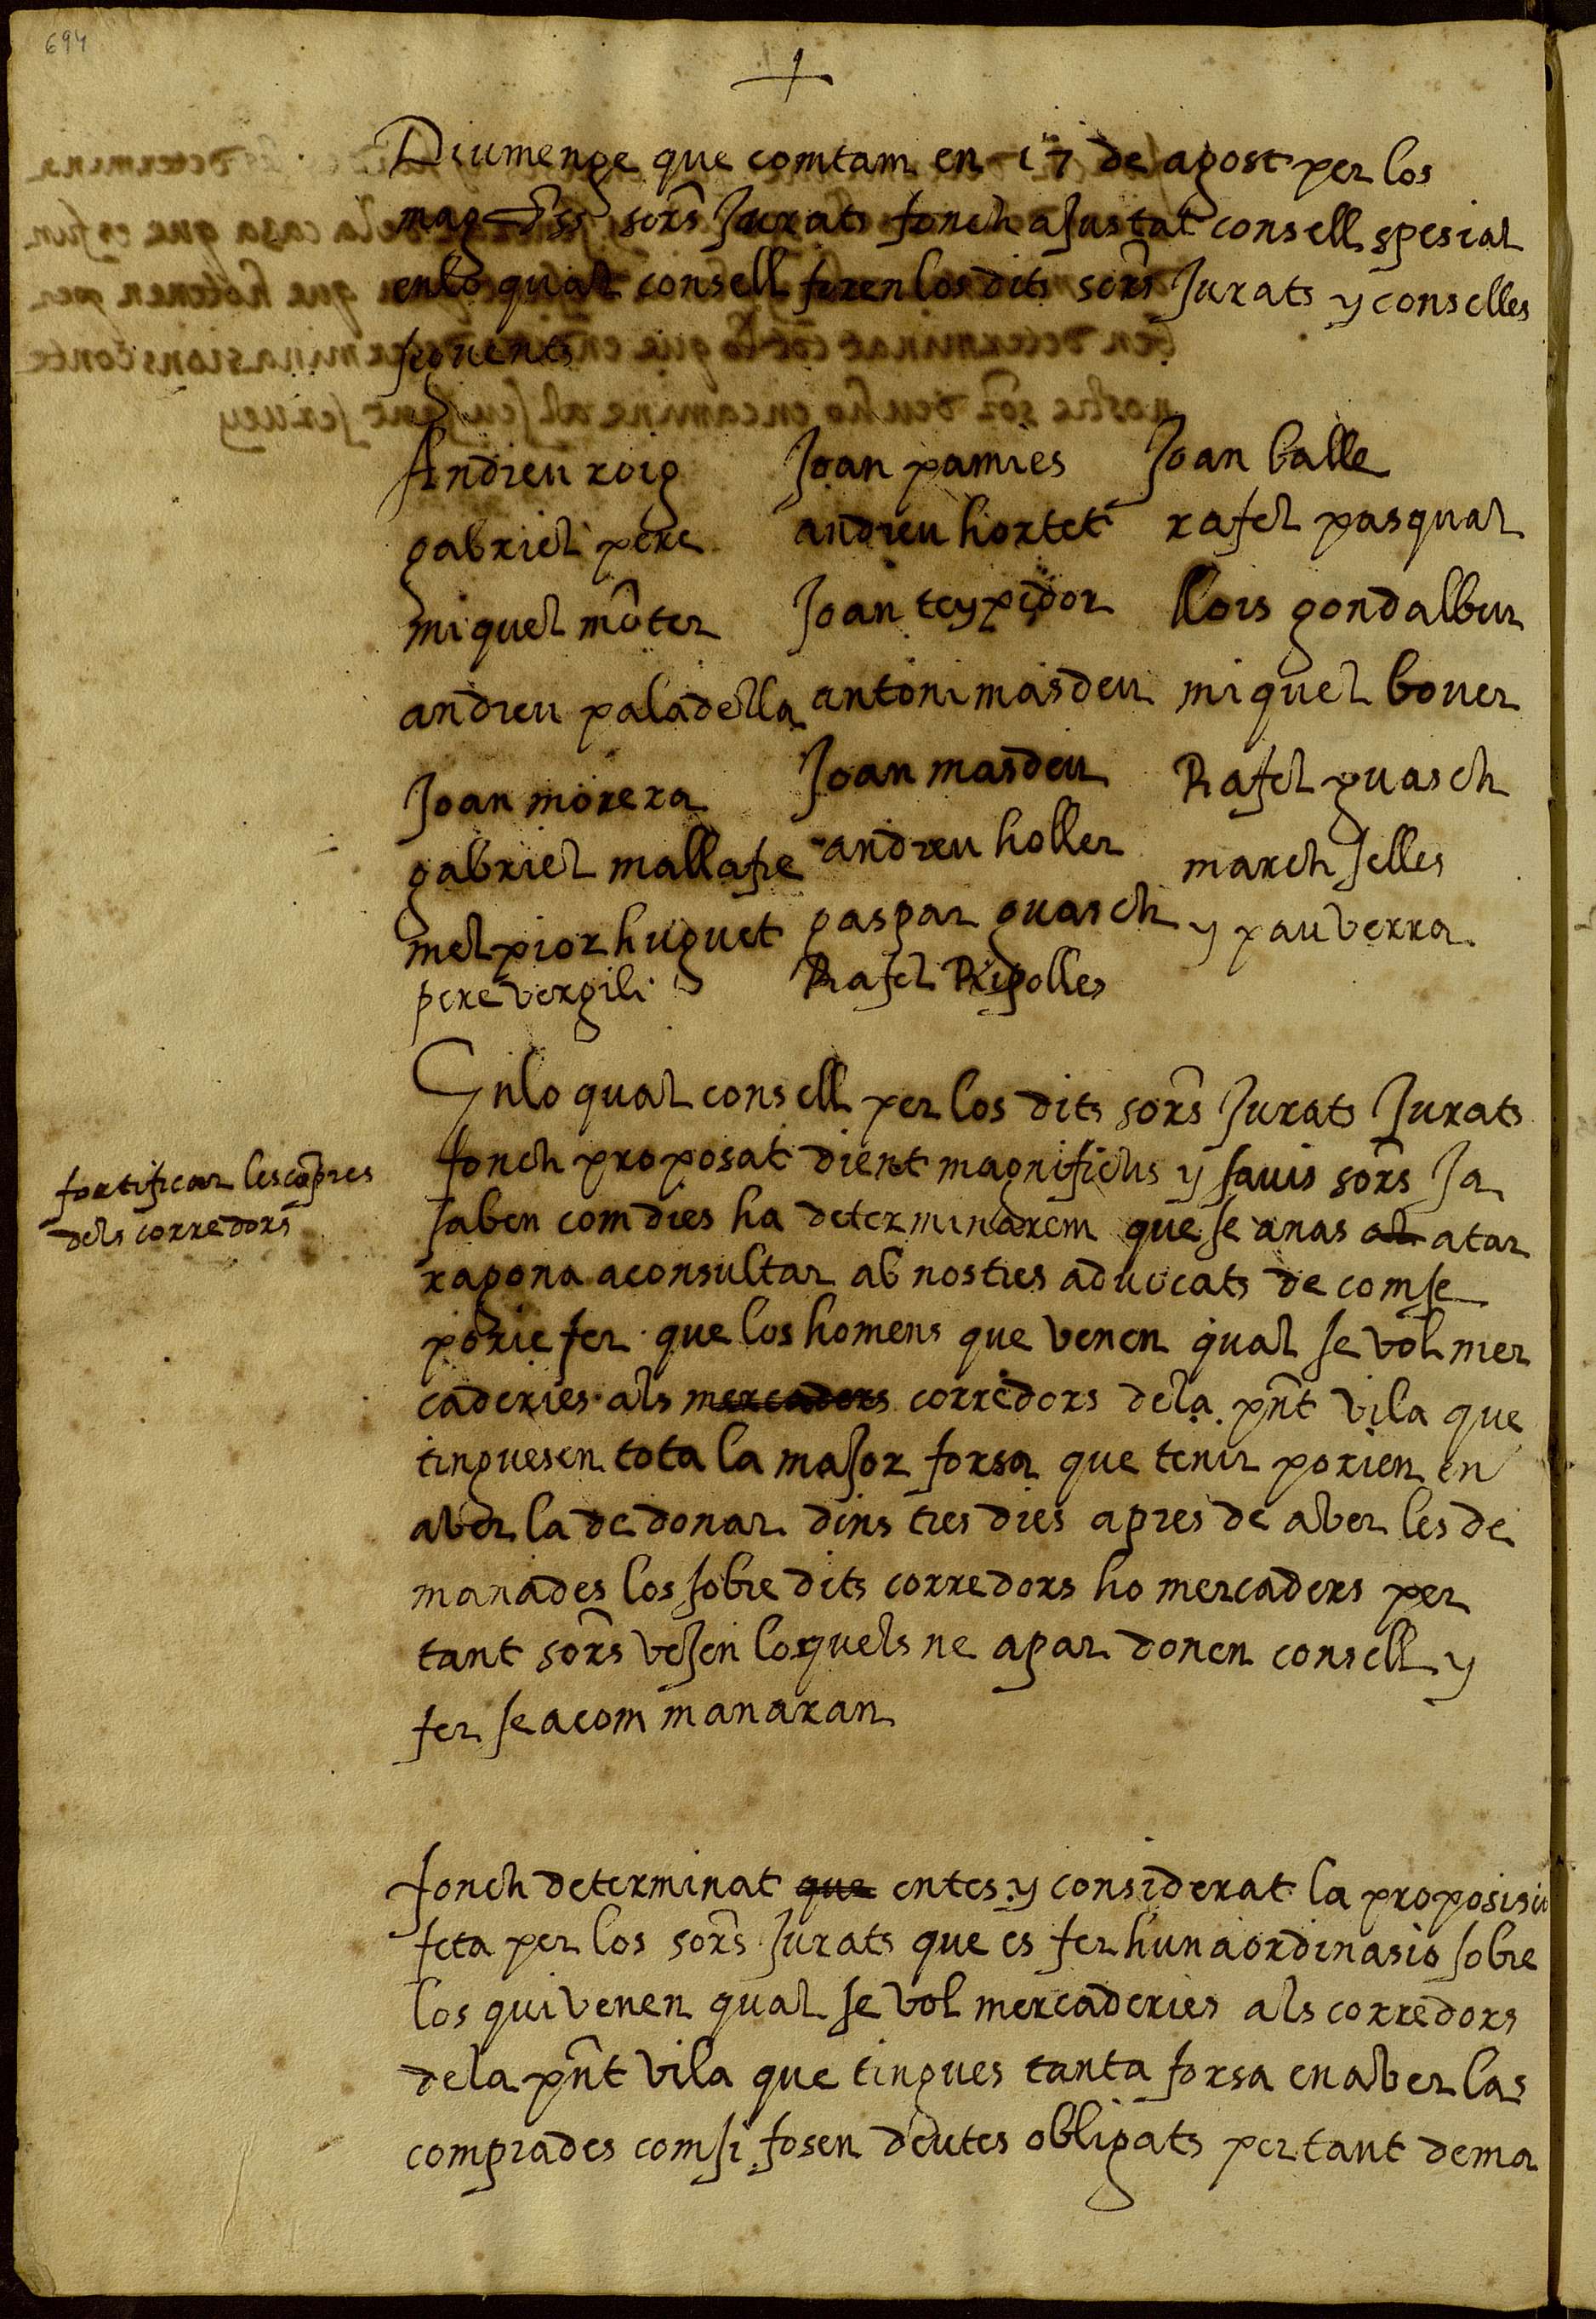 694
Diumenge que comtam en 17 de agost per los
sors Jurats fonch aJustat consell spesial
enlo qual consell foren los dits sors Jurats y conselles
seguents
Andreu roig Joan pamies Joan balle
gabriel pere andreu hortet rafel pasqual
miquel môter Joan teypidor llois gondalbeu
andreu paladella antoni masdeu miquel bover
Joan morera Joan masdeu Rafel guasch
gabriel mallafre andreu holler march selles
melpior huguet gaspar guasch y pau verra
pere vergili Rafel Ripolles
Enlo qual consell per los dits sors Jurats Jurats
fonch proposat dient magnifichs y savis sors Ja
saben com dies ha determinarem que se anas al atar
ragona aconsultar ab nostres advocats de com se
porie fer que los homens que venen qual se vol mer
caderies als mercaders corredors dela pnt vila que
tinguesen tota la maJor forsa que tenir porien en
aver la de donar dins tres dies apres de aver les de
manades los sobre dits corredors ho mercaders per
tant sors veJen losquels ne apar donen consell y
fer se acom manaran
fortificar les cõpres
dels corredors
fonch determinat que entes y considerat la proposisio
feta per los sors Jurats que es fer huna ordinasio sobre
los qui venen qual se vol mercaderies als corredors
dela pnt vila que tingues tanta forsa en aver las
comprades com si fosen deutes obligats per tant dema